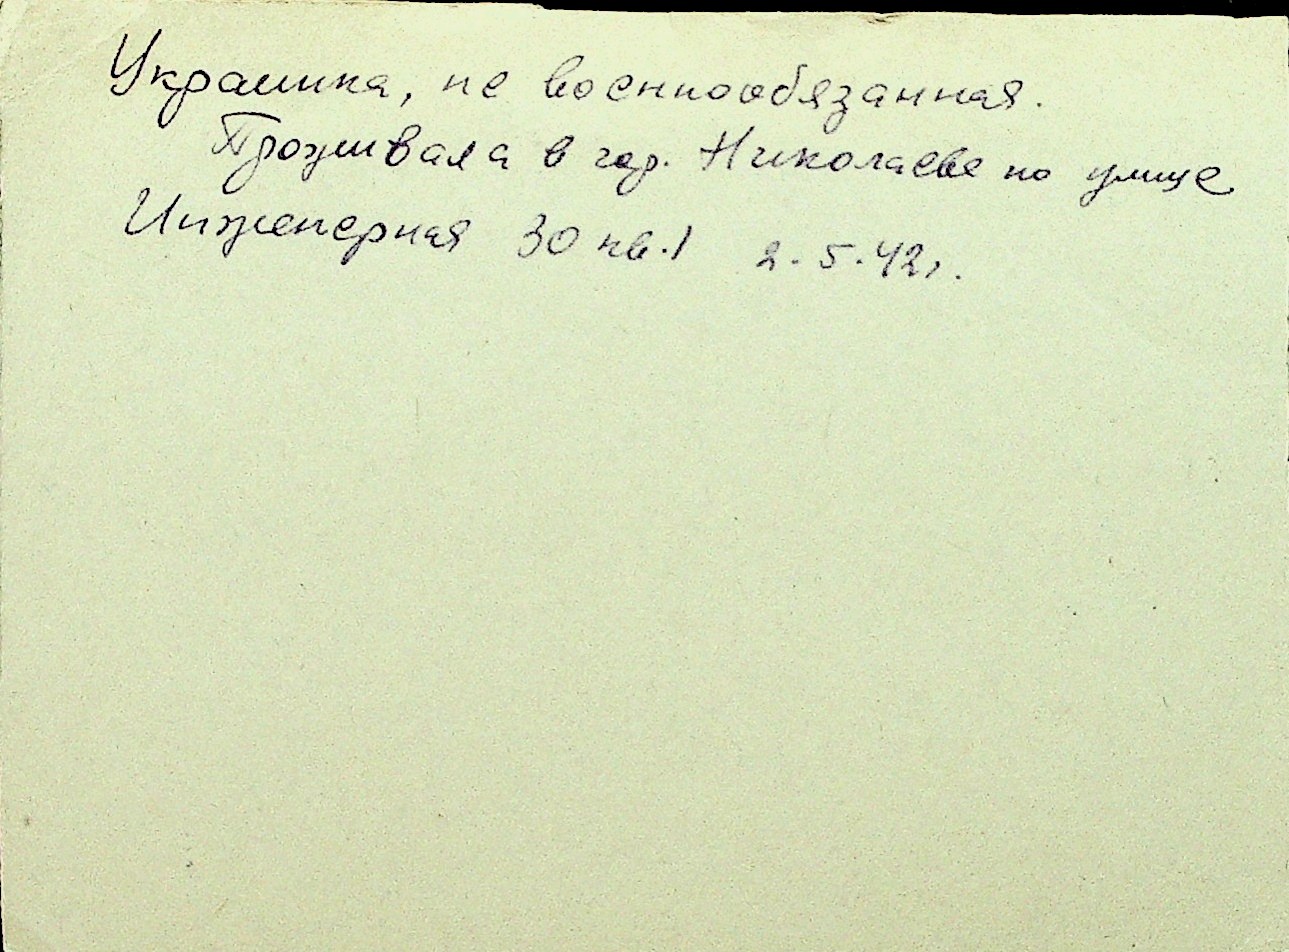 Украинка, не военнообязанная.
Проживала в гор. Николаеве по улице
Инженерная 30 кв.1 2.5.42г.